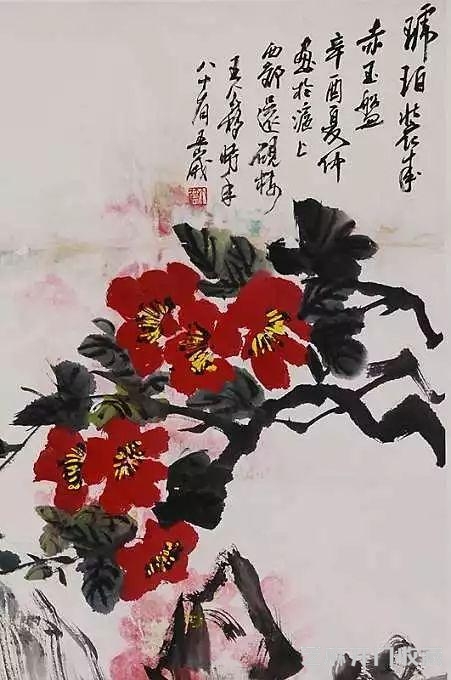 琥珀裝成
赤玉盤
辛酉夏仲
畫於滬上
西郊還硯樓
王个簃時年
八十有五歲